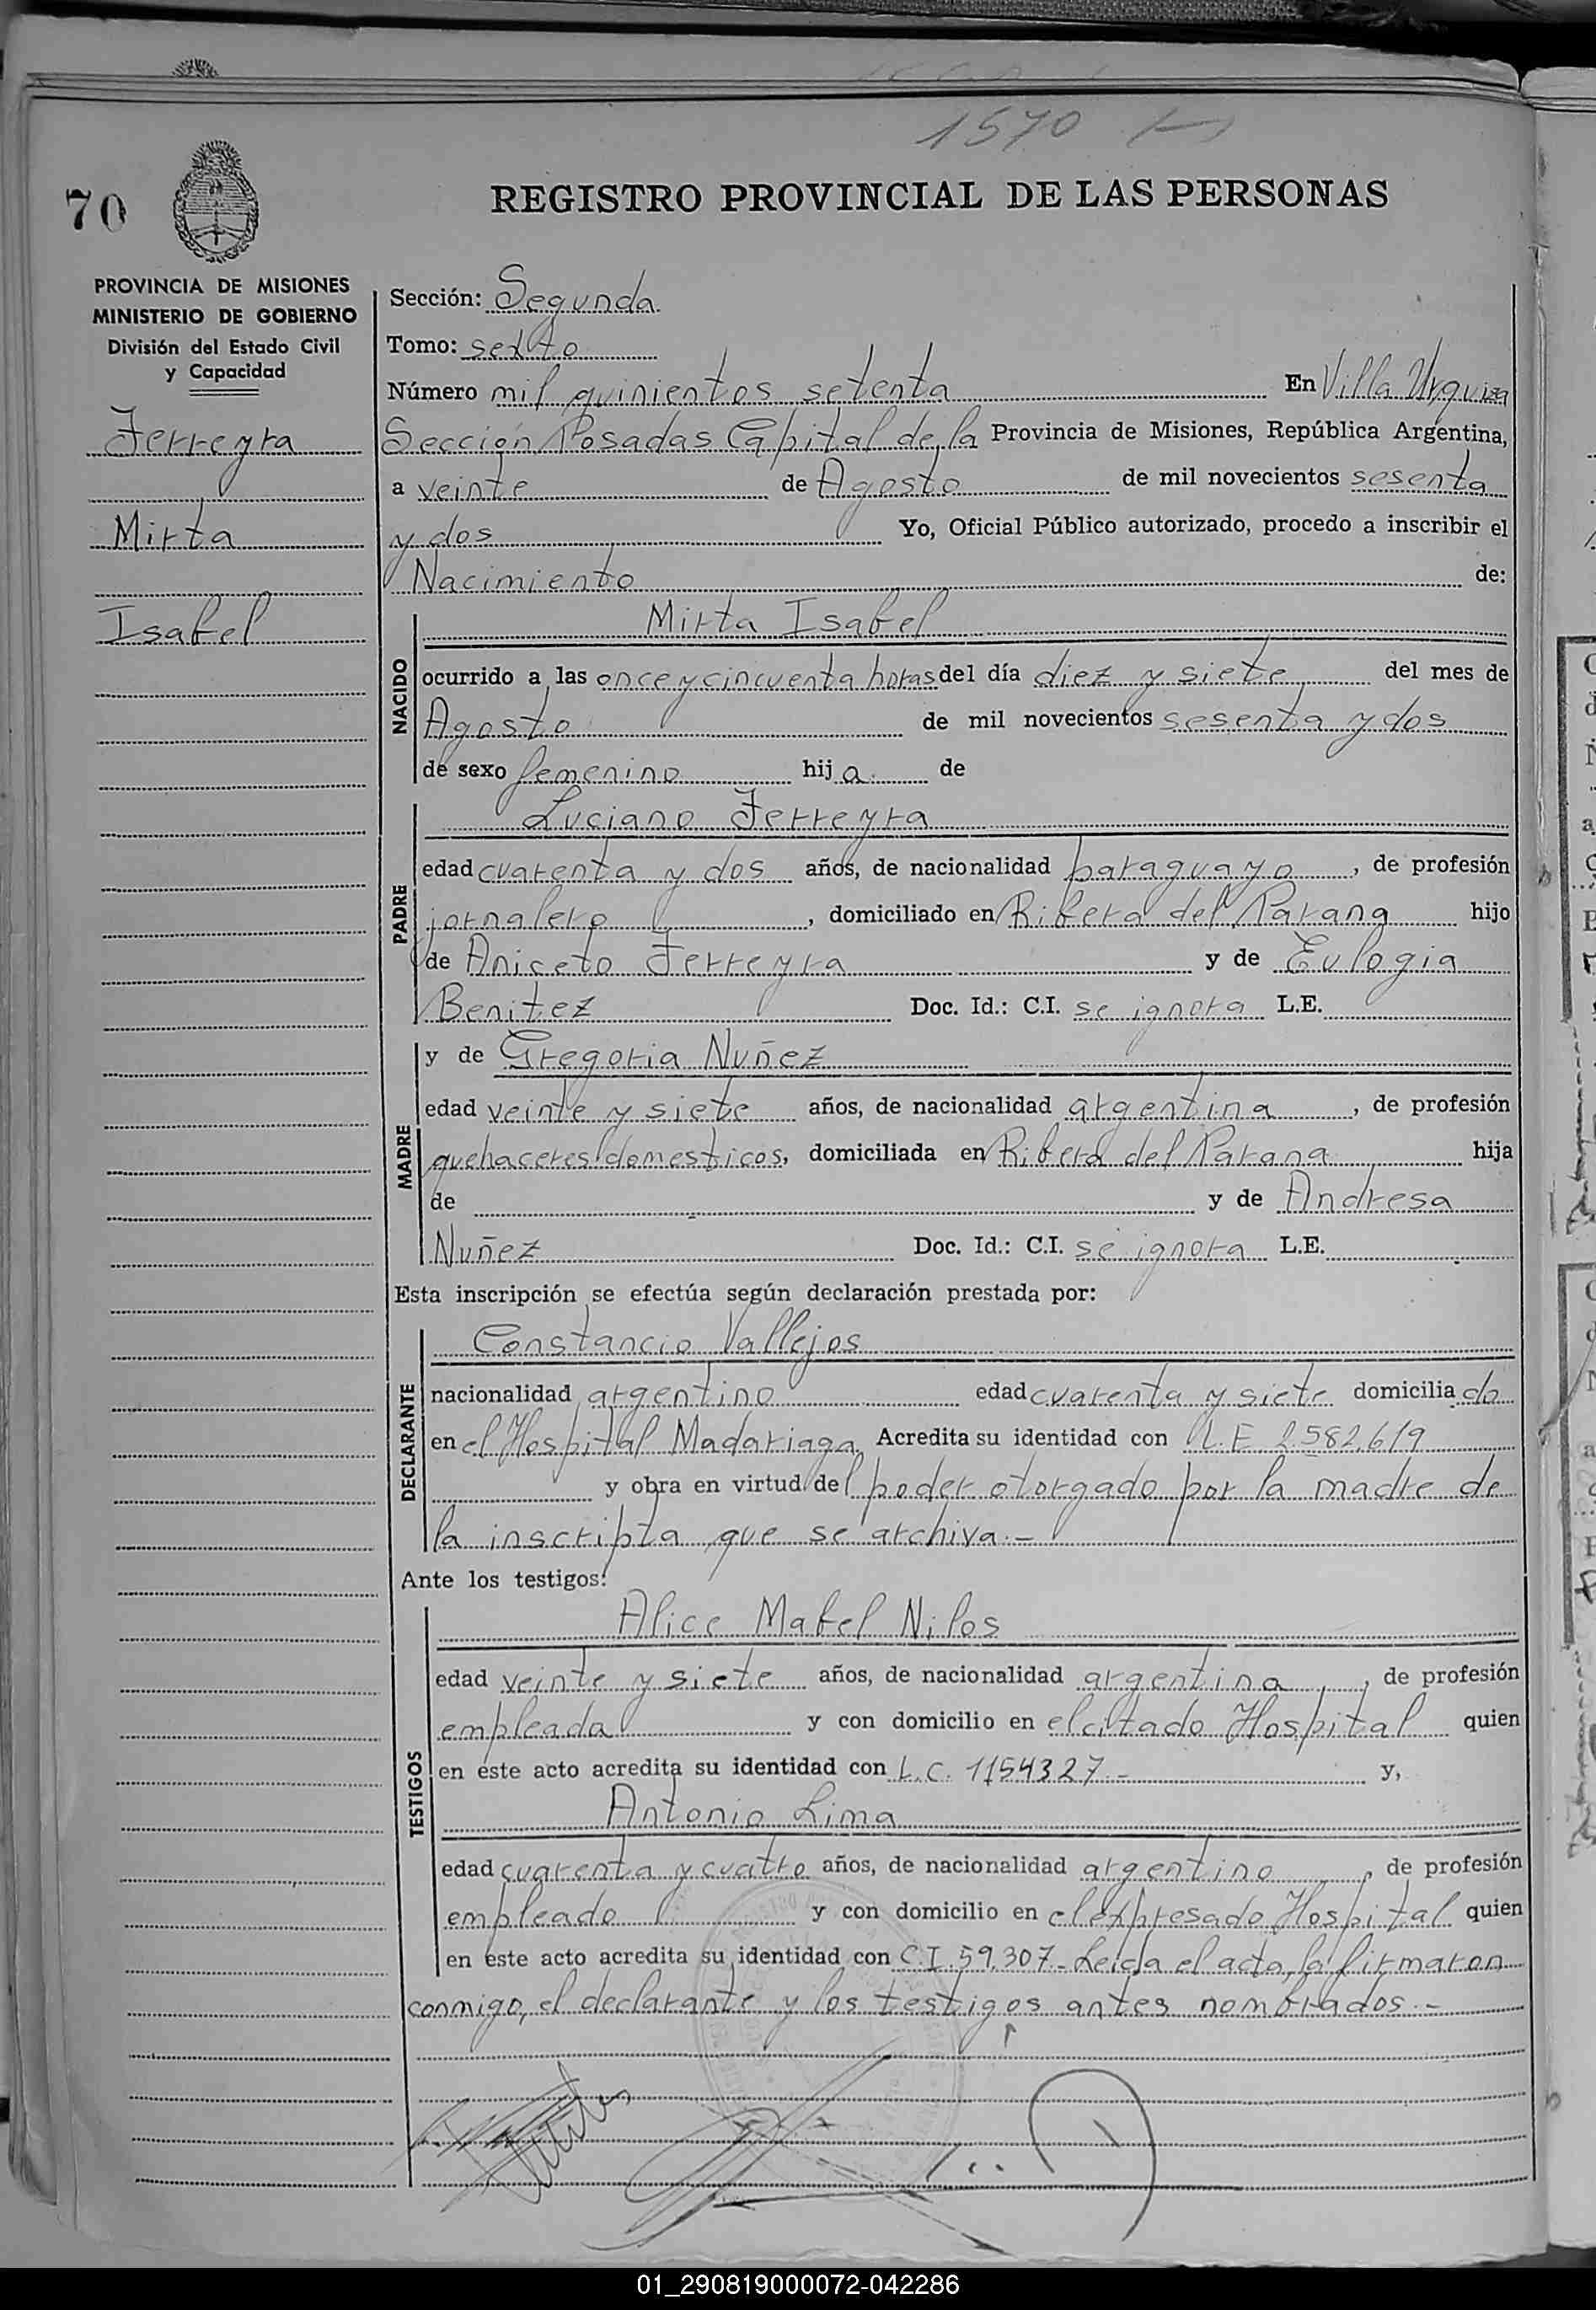 1570
70
REGISTRO PROVINCIAL DE LAS PERSONAS
PROVINCIA DE MISIONES
MINISTERIO DE GOBIERNO
División del Estado Civil
y Capacidad
Ferreyra
Mirta
Isabel
Sección: Segunda
Tomo: sexto
Número mil quinientos setenta En Villa Urquiza
Sección Posadas Capital de la Provincia de Misiones, República Argentina,
a veinte de Agosto de mil novecientos sesenta
y dos Yo, Oficial Público autorizado, procedo a inscribir el
Nacimiento de:
NACIDO
Mirta Isabel
ocurrido a las once y cincuenta horas del día diez y siete del mes de
Agosto de mil novecientos sesenta y dos
de sexo femenino hija de
PADRE
Luciano Ferreyra
edad cuarenta y dos años, de nacionalidad paraguayo, de profesión
jornalero, domiciliado en Ribera del Parana hijo
de Aniceto Ferreyra y de Eulogia
Benitez Doc. Id.: C.I. se ignora L.E.
MADRE
y de Gregoria Nuñez
edad veinte y siete años, de nacionalidad argentina, de profesión
quehaceres domesticos, domiciliada en Ribera del Parana hija
de y de Andresa
Nuñez Doc. Id.: C.I. se ignora L.E.
Esta inscripción se efectúa según declaración prestada por:
DECLARANTE
Constancio Vallejos
nacionalidad argentino edad cuarenta y siete domiciliado
en el Hospital Madariaga Acredita su identidad con L.E 2.582.619
y obra en virtud del poder otorgado por la madre de
la inscripta que se archiva.-
Ante los testigos:
TESTIGOS
Alice Mabel Nilos
edad veinte y siete años, de nacionalidad argentina, de profesión
empleada y con domicilio en el citado Hospital quien
en este acto acredita su identidad con L.C. 1154327.- y,
Antonio Lima
edad cuarenta y cuatro años, de nacionalidad argentino, de profesión
empleado y con domicilio en el expresado Hospital quien
en este acto acredita su identidad con C.I. 59.307.- Leída el acta, la firmaron
conmigo, el declarante y los testigos antes nombrados.-
01_290819000072-042286